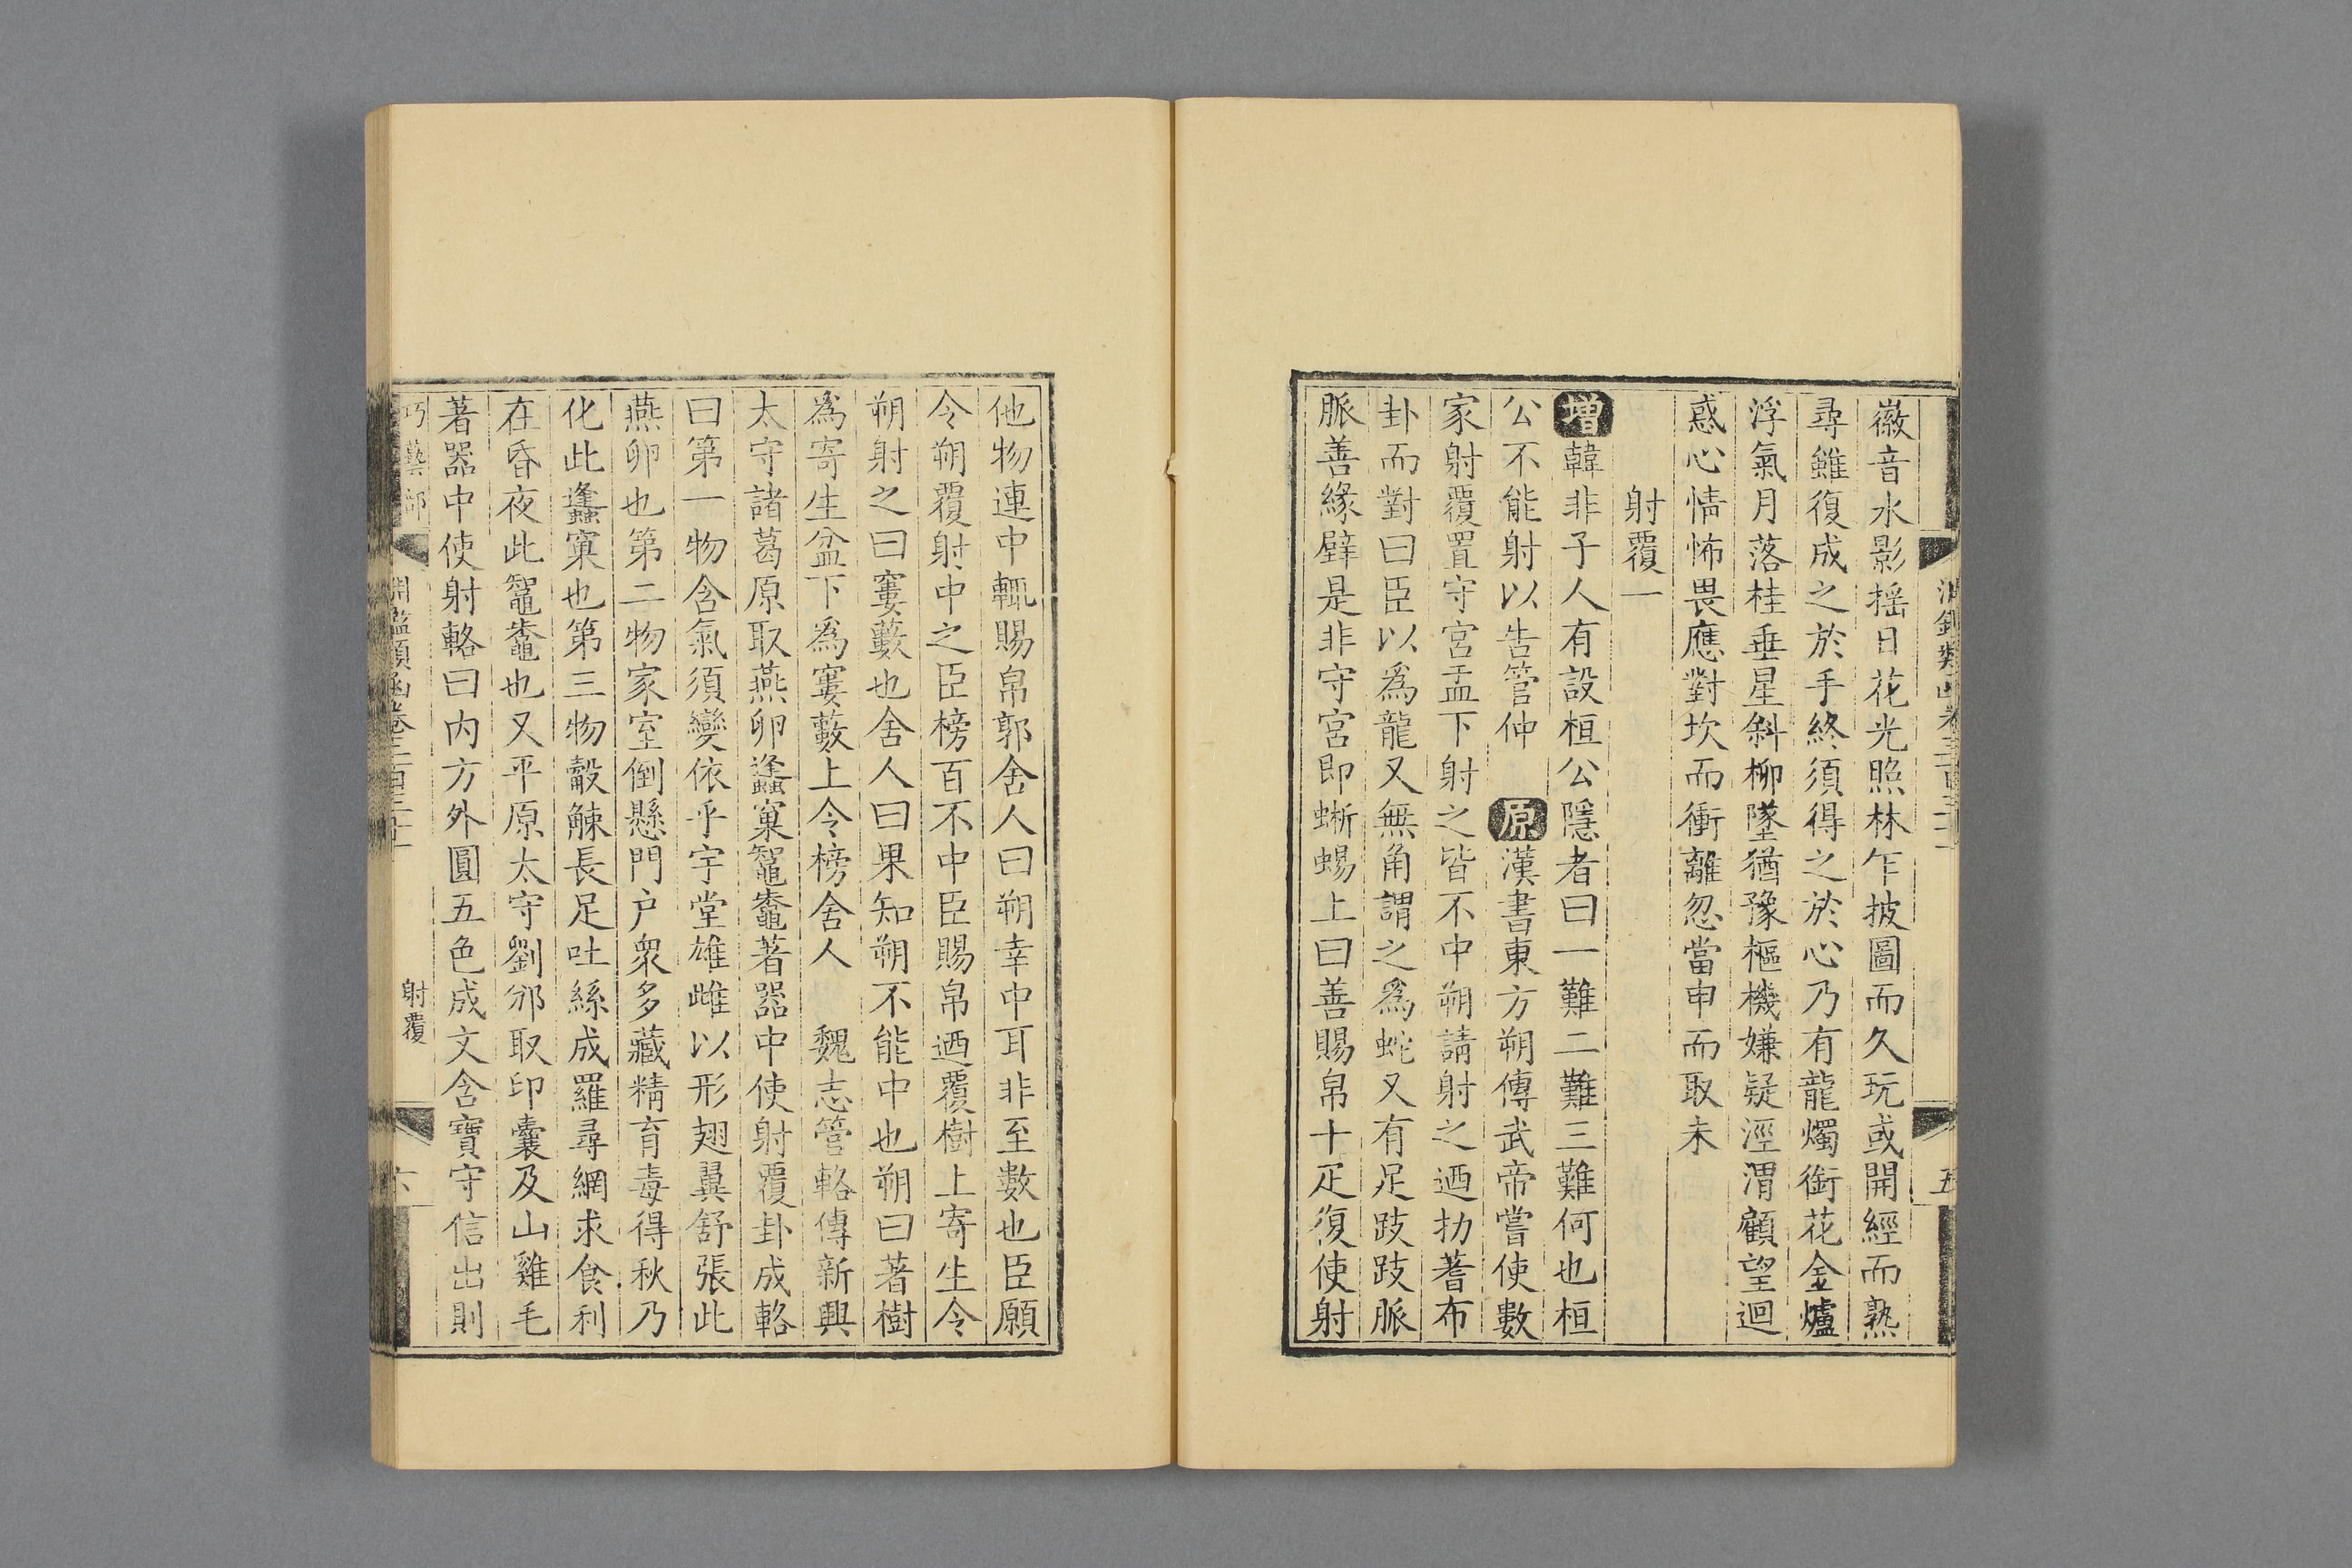 徽音水影揺日花光照林乍披圖而久玩或開經而熟
尋雖復成之於手終須得之於心乃有龍燭銜花金爐
浮氣月落桂垂星斜柳墜猶豫樞機嫌疑涇渭顧望迴
惑心情怖畏應對坎而衝離忽當申而取未
射覆一
增韓非子人有設桓公隱者曰一難二難三難何也桓
公不能射以告管仲 原漢書東方朔傳武帝嘗使數
家射覆置守宮盂下射之皆不中朔請射之迺扐蓍布
卦而對曰臣以爲龍又無角謂之爲蛇又有足跂跂脈
脈善緣壁是非守宮即蜥蜴上曰善賜帛十疋復使射
他物連中輒賜帛郭舍人曰朔幸中耳非至數也臣願
令朔覆射中之臣榜百不中臣賜帛迺覆樹上寄生令
朔射之曰寠藪也舍人曰果知朔不能中也朔曰著樹
爲寄生盆下爲寠藪上令榜舍人 魏志管輅傳新興
太守諸葛原取燕卵蠭窠鼅鼄著器中使射覆卦成輅
曰第一物含氣須變依乎宇堂雄雌以形翅翼舒張此
燕卵也第二物家室倒懸門户衆多藏精育毒得秋乃
化此蠭窠也第三物觳觫長足吐絲成羅尋網求食利
在昏夜此鼅鼄也又平原太守劉邠取印囊及山雞毛
著器中使射輅曰内方外圓五色成文含寶守信出則
巧藝部 淵鑑類函卷三百二十 射覆 六